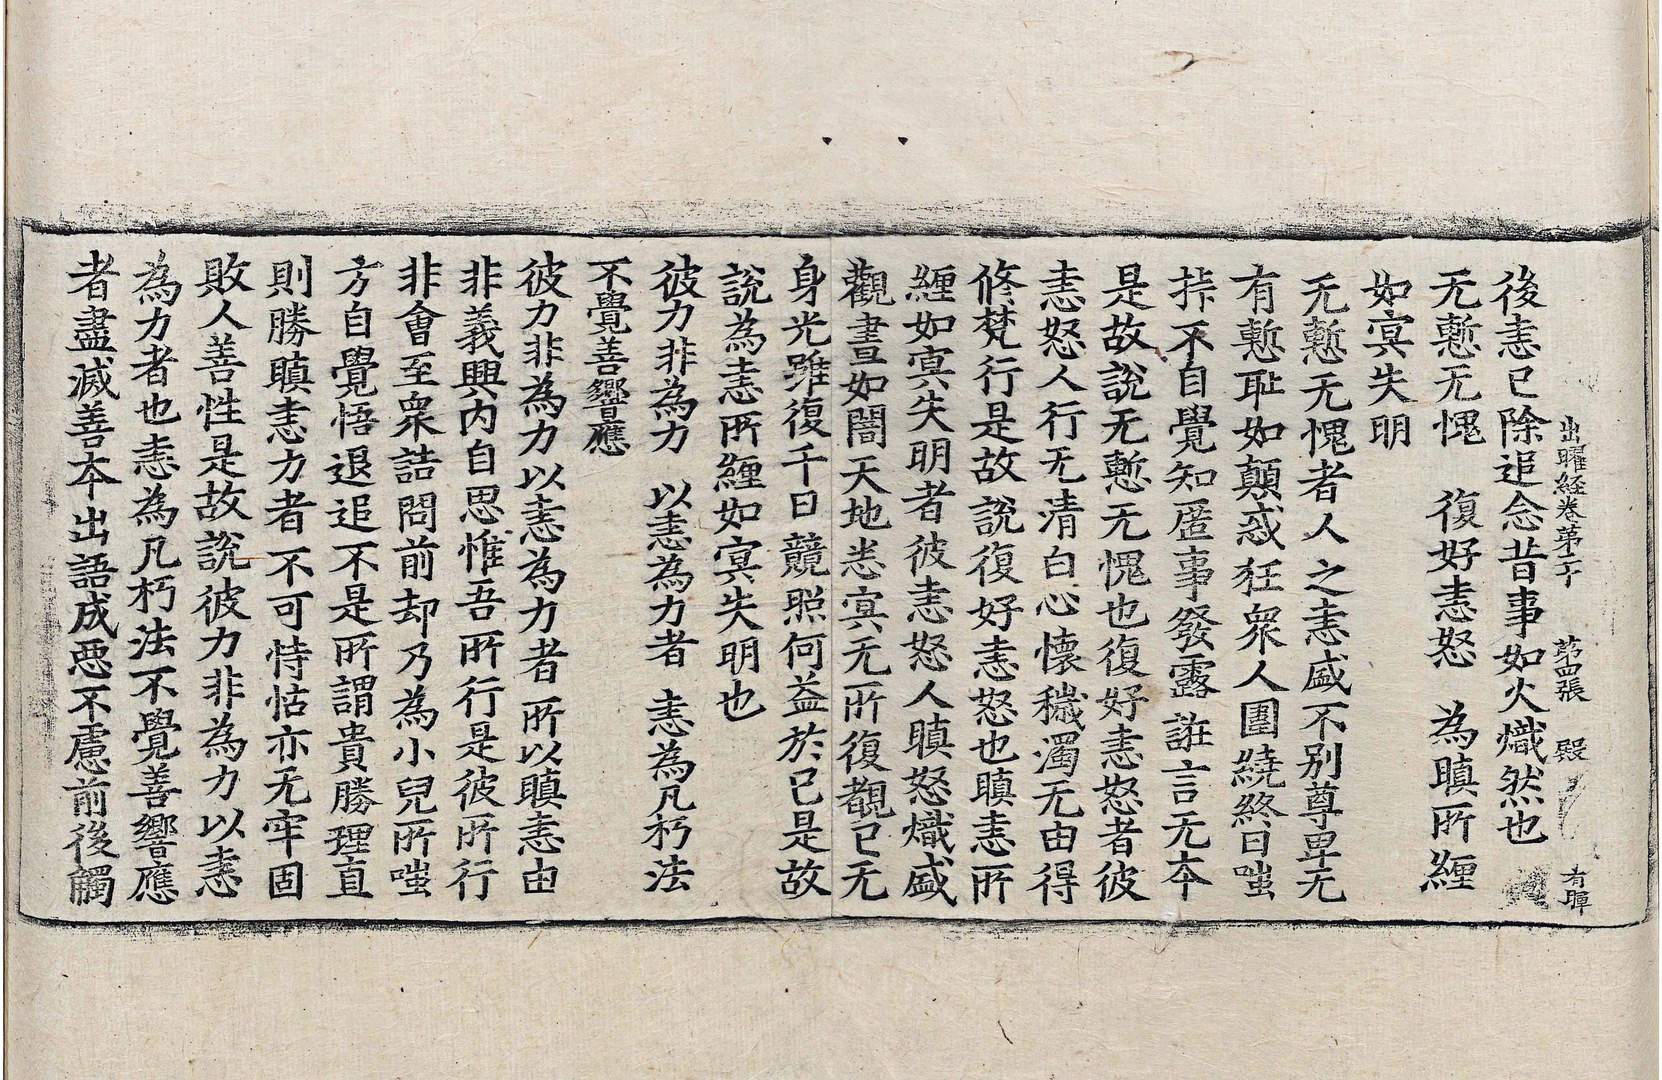 出曜経卷第二十　第四張　殿　有暉
後恚已除追念昔事如火熾然也
无慙无愧　復好恚怒　為瞋所纒
如㝠失明
无慙无愧者人之恚盛不别尊卑无
有慙耻如顛惑狂衆人圍繞終日嗤
㧊不自覺知匿事發露誑言无本
是故說无慙无愧也復好恚怒者彼
恚怒人行无清白心懷穢濁无由得
修梵行是故說復好恚怒也瞋恚所
纒如㝠失明者彼恚怒人瞋怒熾盛
觀晝如闇天地恙㝠无所復覩已无
身光雖復千日競照何益於已是故
說為恚所纒如㝠失明也
彼力非為力　以恚為力者　恚為凡朽法
不覺善響應
彼力非為力以恚為力者所以瞋恚由
非義興内自思惟吾所行是彼所行
非會至衆詰問前却乃為小兒所嗤
方自覺悟退追不是所謂貴勝理直
則勝瞋恚力者不可恃怙亦无牢固
敗人善性是故說彼力非為力以恚
為力者也恚為凡朽法不覺善響應
者盡滅善本出語成惡不慮前後觸